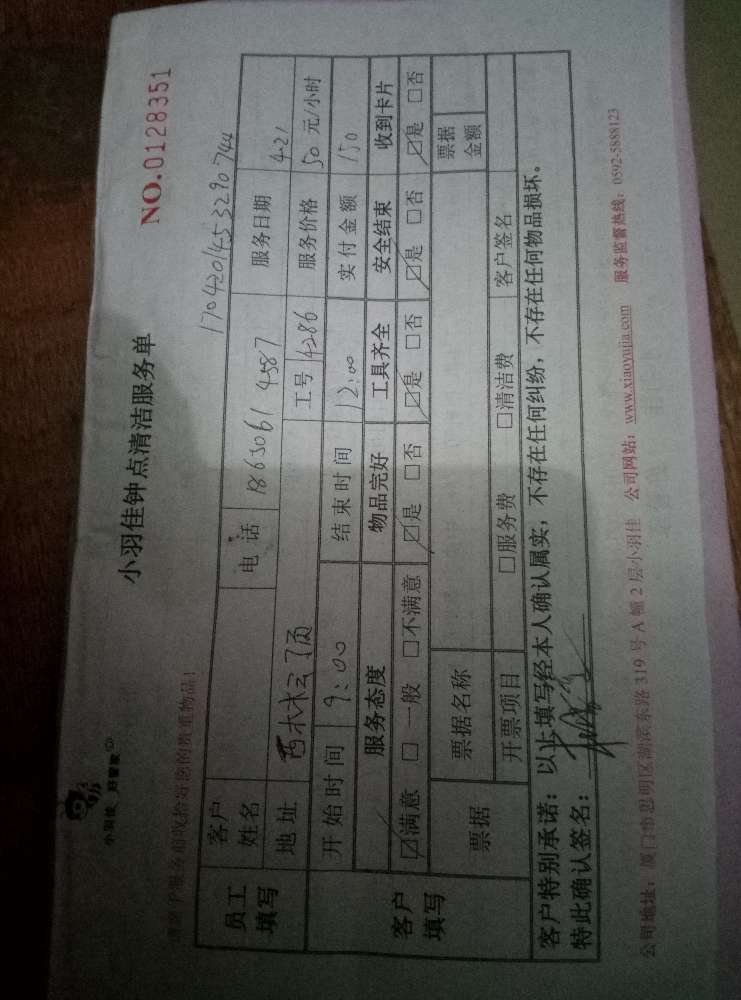 小羽佳 好管家
小羽佳钟点清洁服务单
NO.0128351
170420145329074
员工填写
客户姓名
电话 18630614587
服务日期 4.21
地址
工号 4286
服务价格 50 元/小时
开始时间 9:00 结束时间 12:00 实付金额 150
客户填写
服务态度 物品完好 工具齐全 安全结束 收到卡片
☑满意 □一般 □不满意 ☑是 □否 ☑是 □否 ☑是 □否 ☑是 □否
票据 票据名称 票据金额
开票项目 □服务费 □清洁费 客户签名
客户特别承诺：以上填写经本人确认属实，不存在任何纠纷，不存在任何物品损坏。
特此确认签名：
公司地址：厦门市思明区湖滨东路 319 号 A 幢 2 层小羽佳 公司网站：www.xiaoyujia.com 服务监督热线：0592-5888123